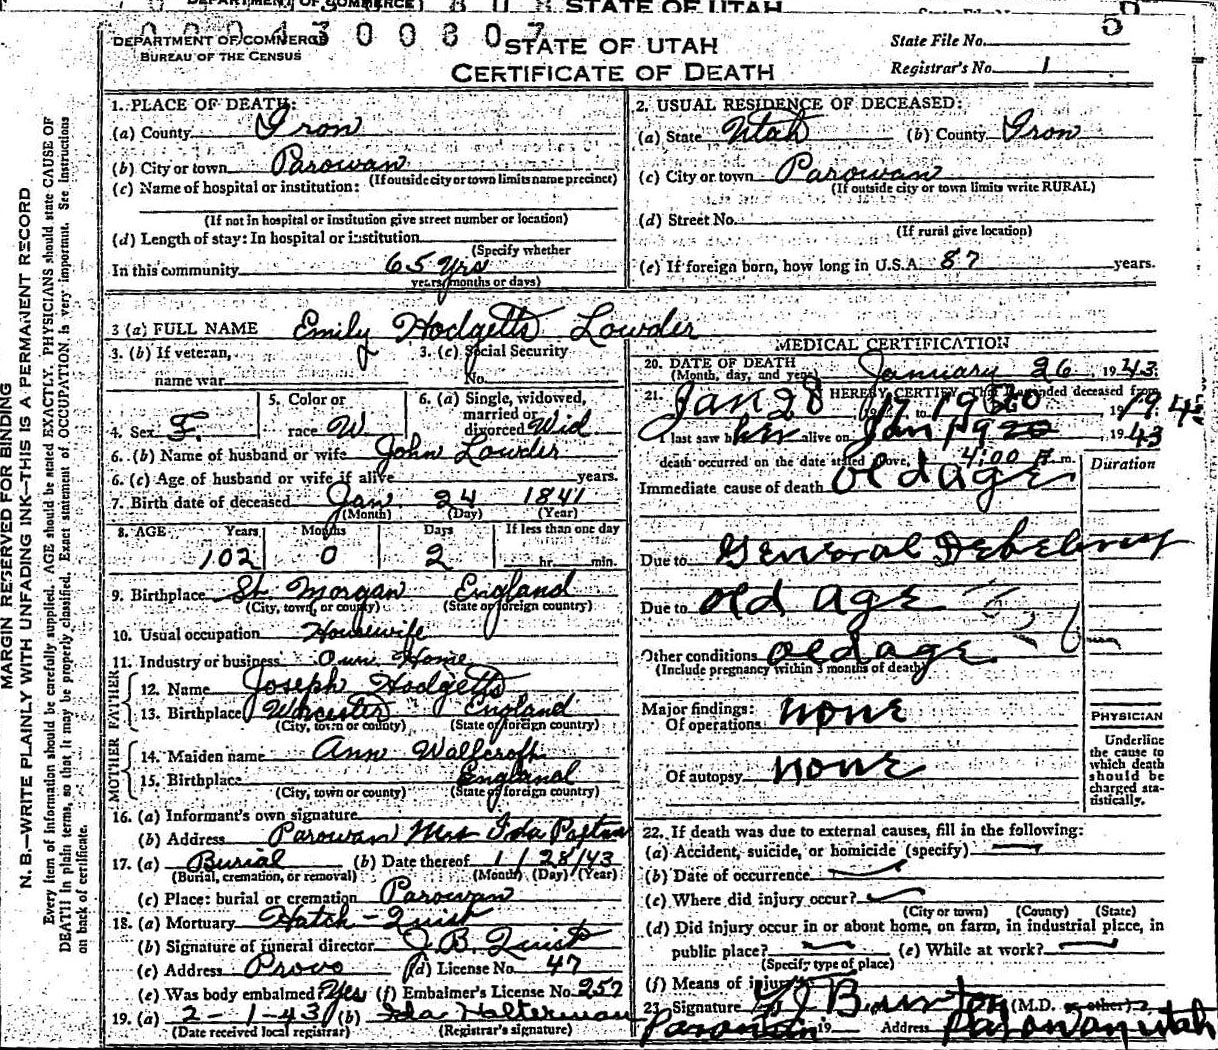 STATE OF UTAH
0004300607
DEPARTMENT OF COMMERCE
BUREAU OF THE CENSUS
STATE OF UTAH
CERTIFICATE OF DEATH
State File No. 5
Registrar's No. 1
MARGIN RESERVED FOR BINDING
N. B.—WRITE PLAINLY WITH UNFADING INK—THIS IS A PERMANENT RECORD
Every item of information should be carefully supplied. AGE should be stated EXACTLY. PHYSICIANS should state CAUSE OF
DEATH in plain terms, so that it may be properly classified. Exact statement of OCCUPATION is very important. See instructions
on back of certificate.
1. PLACE OF DEATH:
(a) County Iron
(b) City or town Parowan
(If outside city or town limits name precinct)
(c) Name of hospital or institution:
(If not in hospital or institution give street number or location)
(d) Length of stay: In hospital or institution
(Specify whether
In this community 65 Yrs
years, months or days)
2. USUAL RESIDENCE OF DECEASED:
(a) State Utah (b) County Iron
(c) City or town Parowan
(If outside city or town limits write RURAL)
(d) Street No.
(If rural give location)
(e) If foreign born, how long in U.S.A. 87 years.
3 (a) FULL NAME Emily Hodgetts Lowder
3. (b) If veteran,
name war
3. (c) Social Security
No.
4. Sex F.
5. Color or
race W
6. (a) Single, widowed,
married or
divorced Wid
6. (b) Name of husband or wife John Lowder
6. (c) Age of husband or wife if alive years.
7. Birth date of deceased Jan 24 1841
(Month) (Day) (Year)
8. AGE Years Months Days If less than one day
102 0 2 hr. min.
9. Birthplace St. Morgan England
(City, town, or county) (State or foreign country)
10. Usual occupation Housewife
11. Industry or business Own Home
FATHER
12. Name Joseph Hodgetts
13. Birthplace Worcester England
(City, town or county) (State or foreign country)
MOTHER
14. Maiden name Ann Wallcroft
15. Birthplace England
(City, town or county) (State or foreign country)
16. (a) Informant's own signature
(b) Address Parowan Mrs Ida
17. (a) Burial (b) Date thereof 1/28/43
(Burial, cremation, or removal) (Month) (Day) (Year)
(c) Place: burial or cremation Parowan
18. (a) Mortuary Hatch-Quist
(b) Signature of funeral director J. B. Quist
(c) Address Provo (d) License No. 47
(e) Was body embalmed? Yes (f) Embalmer's License No. 257
19. (a) 2-1-43 (b) Ida Halterman
(Date received local registrar) (Registrar's signature)
MEDICAL CERTIFICATION
20. DATE OF DEATH
(Month, day, and year) January 26, 1943
21. I HEREBY CERTIFY, That I attended deceased from
Jan 28
I last saw her alive on Jan 19 , 1943
death occurred on the date stated above, 4:00 m.
Immediate cause of death old age
Duration
Due to General Debelinty
Due to old age
Other conditions old age
(Include pregnancy within 3 months of death)
Major findings:
Of operations none
Of autopsy none
PHYSICIAN
Underline
the cause to
which death
should be
charged sta-
tistically.
22. If death was due to external causes, fill in the following:
(a) Accident, suicide, or homicide (specify)
(b) Date of occurrence
(c) Where did injury occur?
(City or town) (County) (State)
(d) Did injury occur in or about home, on farm, in industrial place, in
public place? (e) While at work?
(Specify type of place)
(f) Means of injury
23. Signature Burton (M.D. or other)
Parowan 19 Address Parowan utah